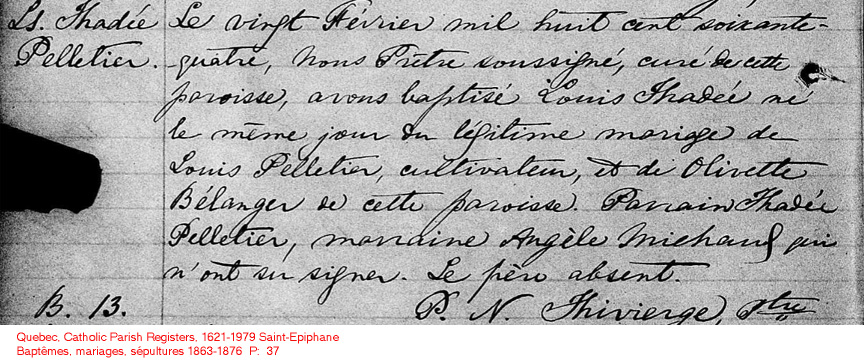 Ls. Thadée Le vingt Février mil huit cent soixante-
Pelletier. quatre, Nous Prêtre soussigné, curé de cette
paroisse, avons baptisé Louis Thadée né
le même jour du légitime mariage de
Louis Pelletier, cultivateur, et de Olivette
Bélanger de cette paroisse. Parrain Thadée
Pelletier, marraine Angèle Michaud qui
n'ont su signer. Le père absent.
B. 13. P. N. Thivierge, Ptre
Quebec, Catholic Parish Registers, 1621-1979 Saint-Epiphane
Baptêmes, mariages, sépultures 1863-1876 P: 37